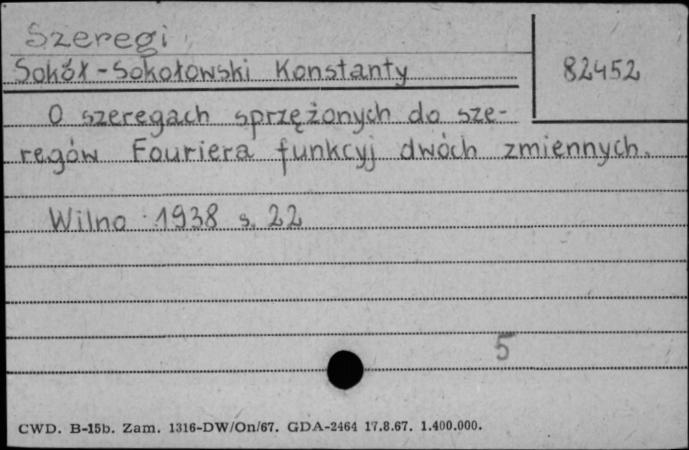 Szeregi
Sokół-Sokołowski Konstanty
82452
O szeregach sprzężonych do sze-
regów Fouriera funkcyj dwóch zmiennych.
Wilno 1938 s. 22
5
CWD. B-15b. Zam. 1316-DW/On/67. GDA-2464 17.8.67. 1.400.000.